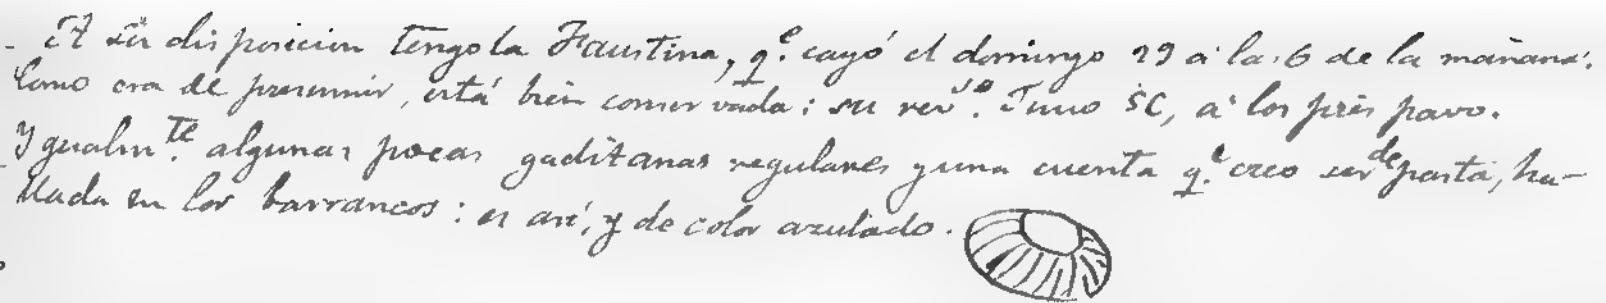 - A su disposicion tengo la Faustina, q.e cayó el domingo 29 á las 6 de la mañana.
Como era de presumir, está bien conservada: su rev.so Juno SC, á los pies pavo.
Ygualm.te algunas pocas gaditanas regulares y una cuenta q.e creo ser de pasta, ha-
llada en los barrancos: es así, y de color azulado.